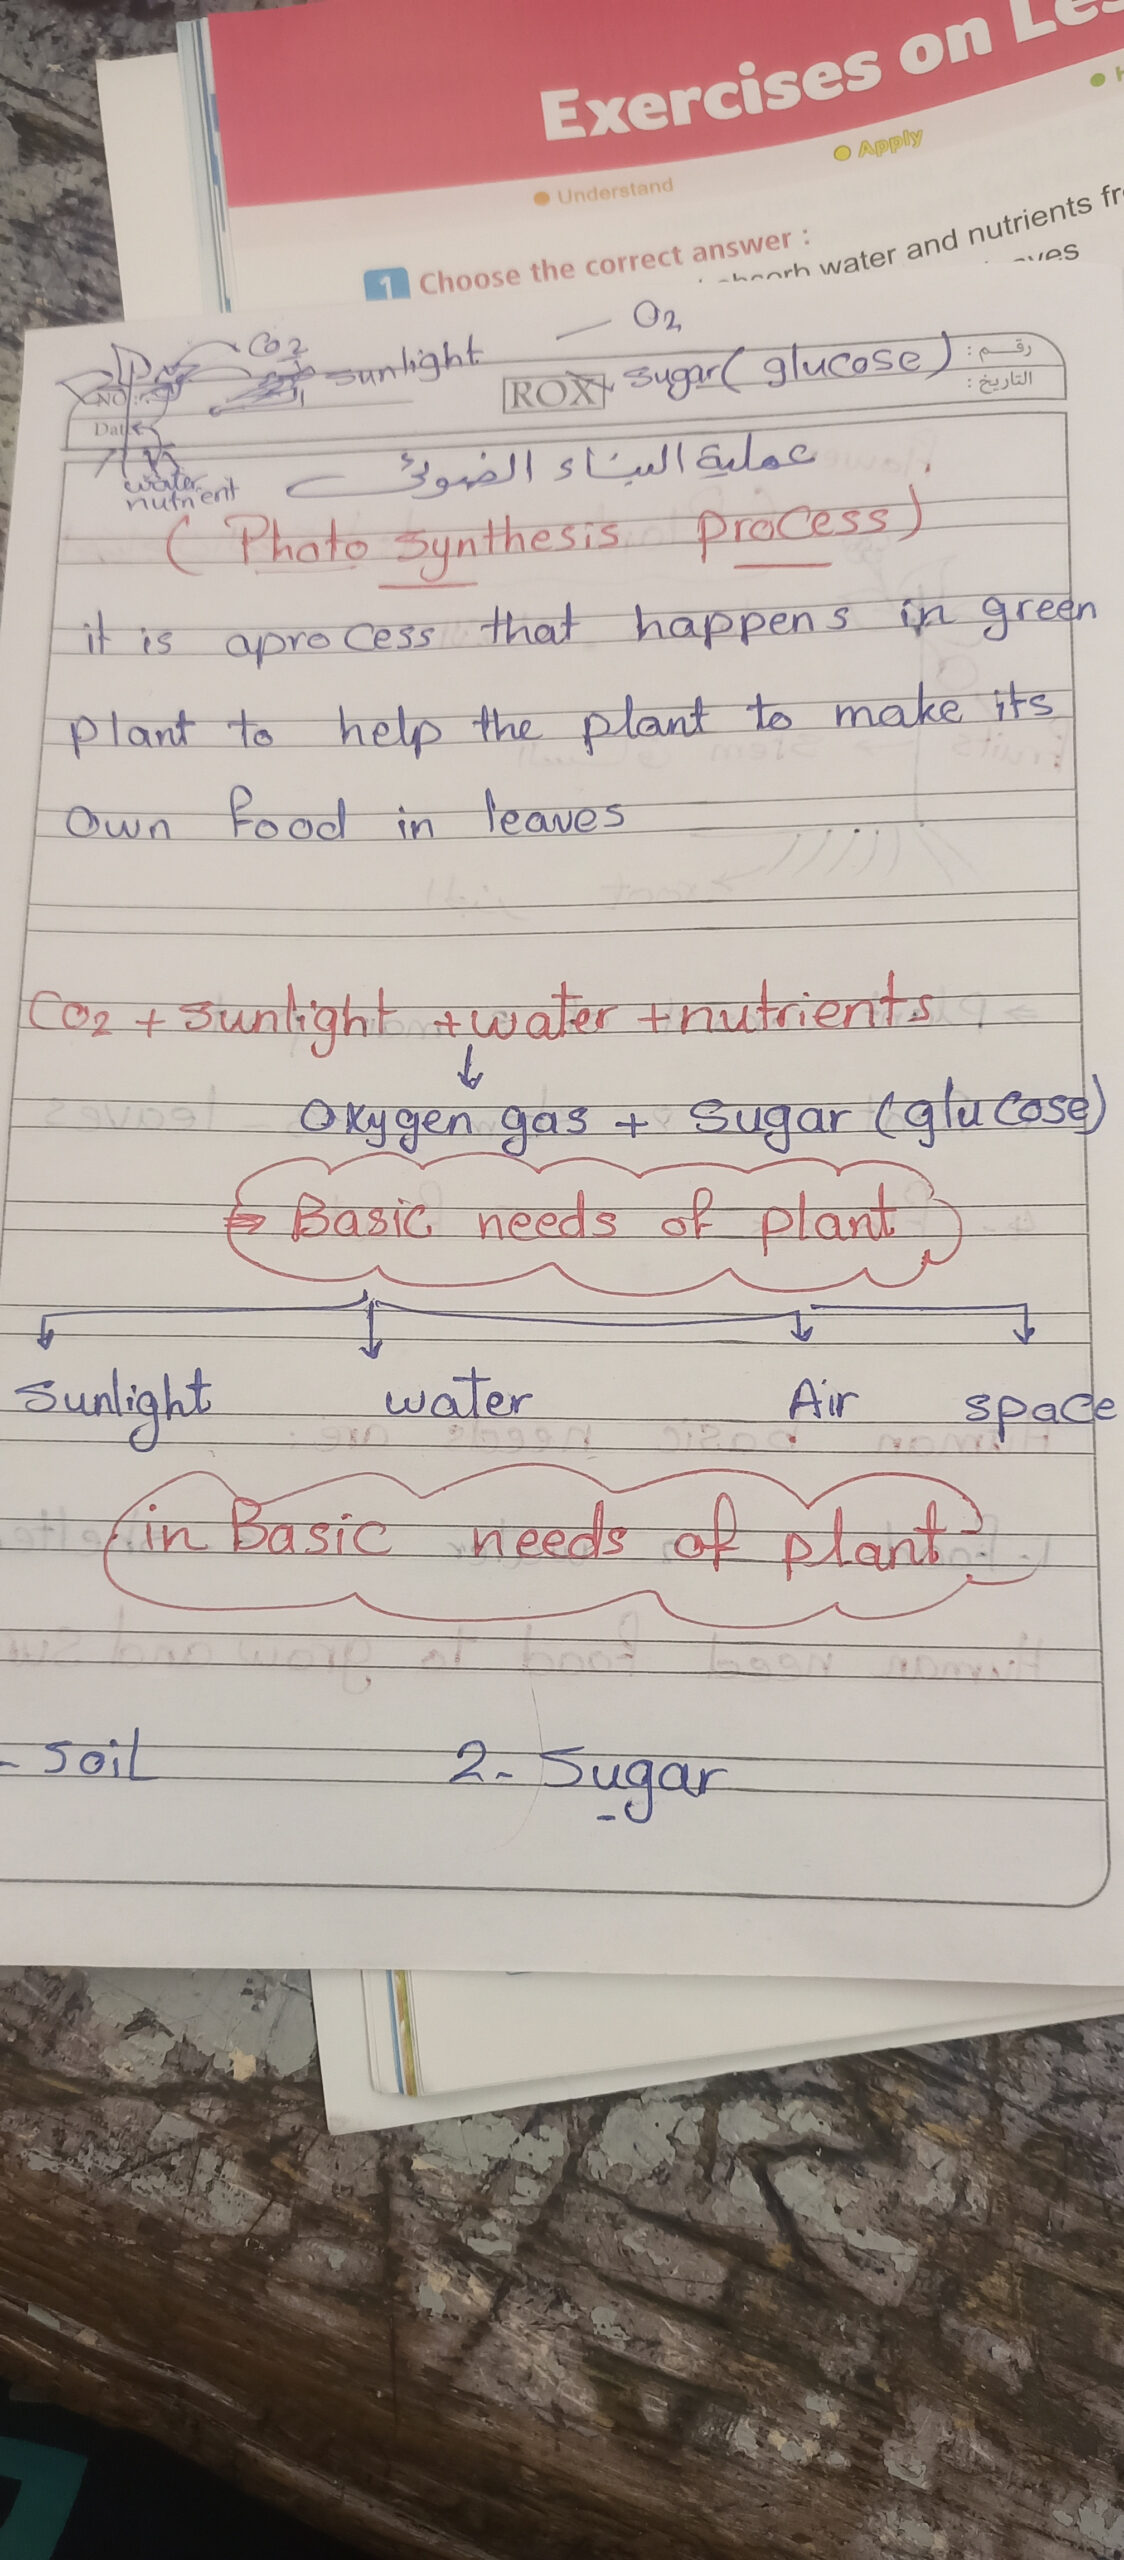 Exercises on Le
Apply
Understand
1 Choose the correct answer :
absorb water and nutrients fr
CO2
sunlight
O2
ROX
+ Sugar ( glucose )
رقم :
التاريخ :
NO
Dat
water
nutrient
عملية البناء الضوئى
( Photo synthesis process )
it is aprocess that happens in green
plant to help the plant to make its
own food in leaves
CO2 + sunlight + water + nutrients
↓
Oxygen gas + Sugar (glucose)
Basic needs of plant
sunlight water Air space
in Basic needs of plant
- soil 2- Sugar